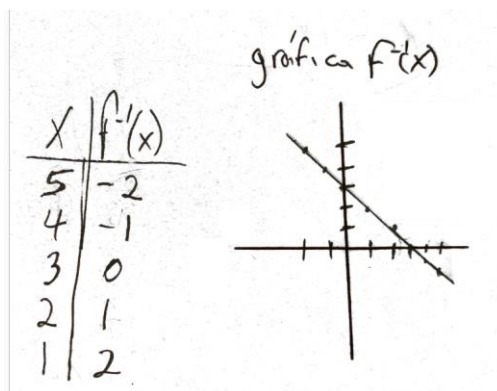 gráfica f⁻¹(x)
x f⁻¹(x)
5 -2
4 -1
3 0
2 1
1 2